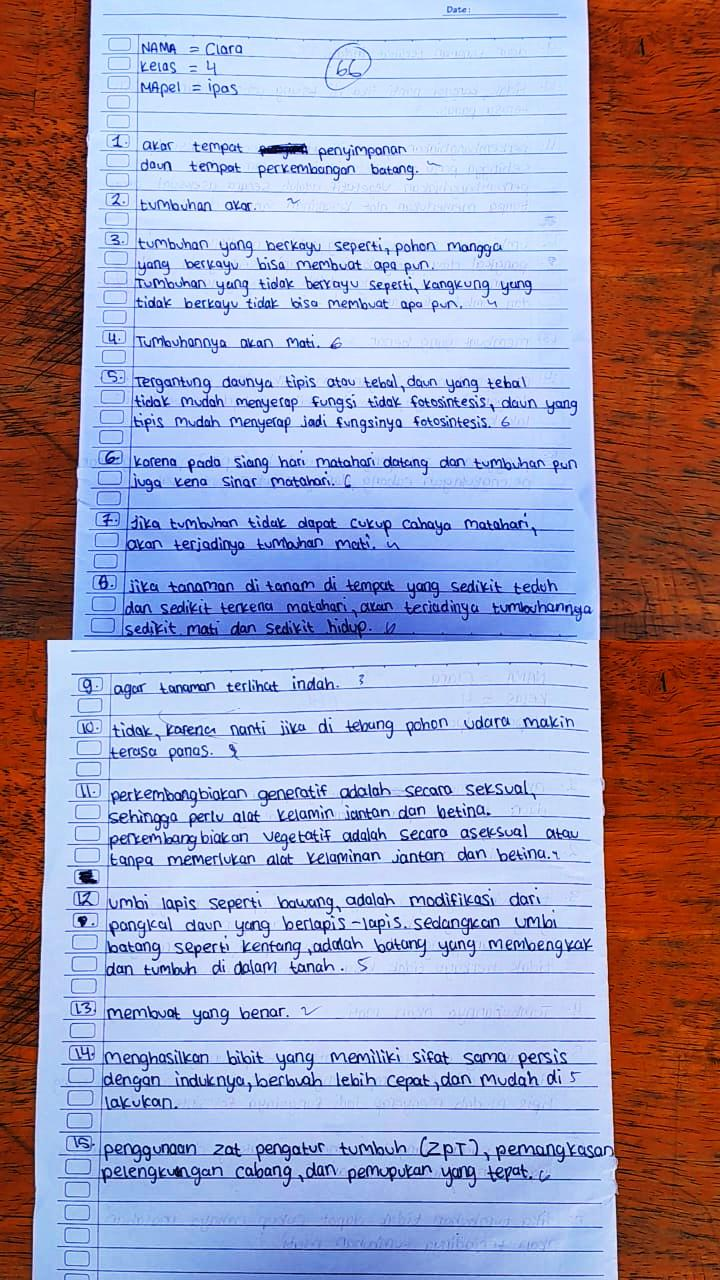 Date:
NAMA = Clara
kelas = 4
MApel = ipas
66
1. akar tempat penyimpanan
daun tempat perkembangan batang.
2. tumbuhan akar. 2
3. tumbuhan yang berkayu seperti, pohon mangga
yang berkayu bisa membuat apa pun.
Tumbuhan yang tidak berkayu seperti, kangkung yang
tidak berkayu tidak bisa membuat apa pun. 4
4. Tumbuhannya akan mati. 6
5. Tergantung daunya tipis atau tebal, daun yang tebal
tidak mudah menyerap fungsi tidak fotosintesis, daun yang
tipis mudah menyerap jadi fungsinya fotosintesis. 6
6. karena pada siang hari matahari datang dan tumbuhan pun
juga kena sinar matahari.
7. Jika tumbuhan tidak dapat cukup cahaya matahari,
akan terjadinya tumbuhan mati.
8. Jika tanaman di tanam di tempat yang sedikit teduh
dan sedikit terkena matahari, akan terjadinya tumbuhannya
sedikit mati dan sedikit hidup.
9. agar tanaman terlihat indah. 3
10. tidak, karena nanti jika di tebang pohon udara makin
terasa panas.
11. perkembangbiakan generatif adalah secara seksual,
sehingga perlu alat kelamin jantan dan betina.
perkembangbiakan vegetatif adalah secara aseksual atau
tanpa memerlukan alat kelaminan jantan dan betina.
12 umbi lapis seperti bawang, adalah modifikasi dari
pangkal daun yang berlapis-lapis. sedangkan umbi
batang seperti kentang, adalah batang yang membengkak
dan tumbuh di dalam tanah. 5
13. membuat yang benar. 2
14. menghasilkan bibit yang memiliki sifat sama persis
dengan induknya, berbuah lebih cepat, dan mudah di 5
lakukan.
15. penggunaan zat pengatur tumbuh (ZPT), pemangkasan
pelengkungan cabang, dan pemupukan yang tepat.